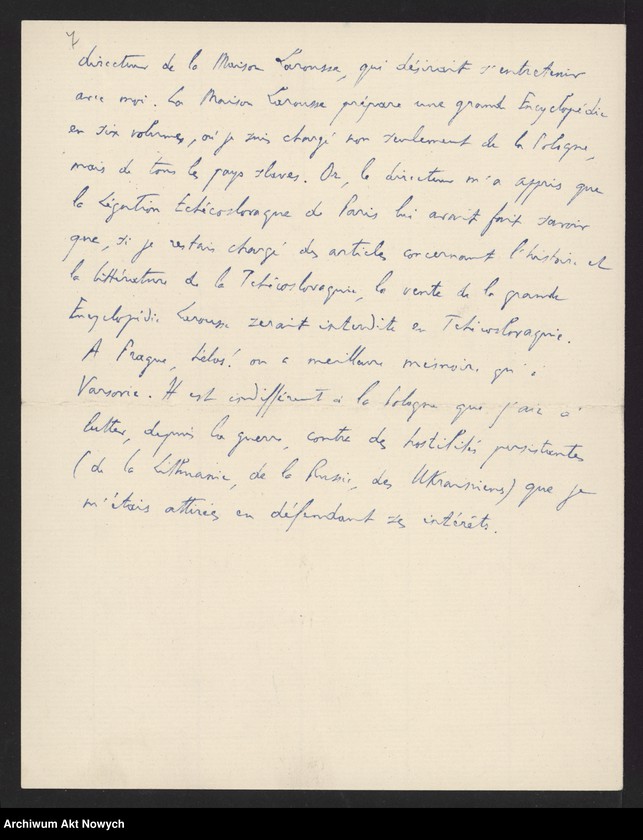 7
directeur de la Maison Larousse, qui désirait s'entretenir
avec moi. La Maison Larousse prépare une grande Encyclopédie
en six volumes, où je suis chargé non seulement de la Pologne,
mais de tous les pays slaves. Or, le directeur m'a appris que
la Légation tchécoslovaque de Paris lui avait fait savoir
que, si je restais chargé des articles concernant l'histoire et
la littérature de la Tchécoslovaquie, la vente de la grande
Encyclopédie Larousse serait interdite en Tchécoslovaquie.
A Prague, hélas! on a meilleure mémoire qu'à
Varsovie. Il est indifférent à la Pologne que j'aie à
lutter, depuis la guerre, contre des hostilités persistantes
(de la Lithuanie, de la Russie, des Ukrainiens) que je
m'étais attirées en défendant ses intérêts.
Archiwum Akt Nowych